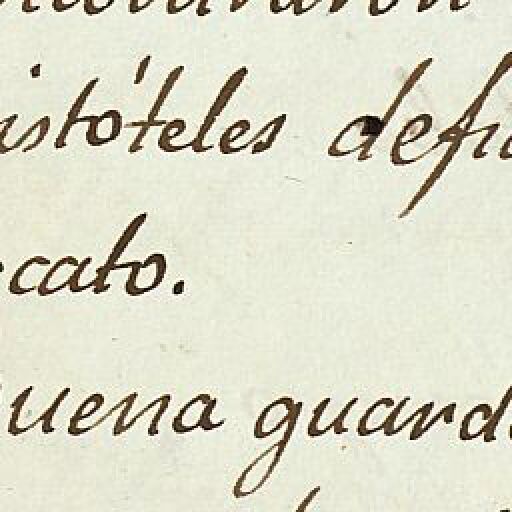 istóteles defi
ecato.
uena guard